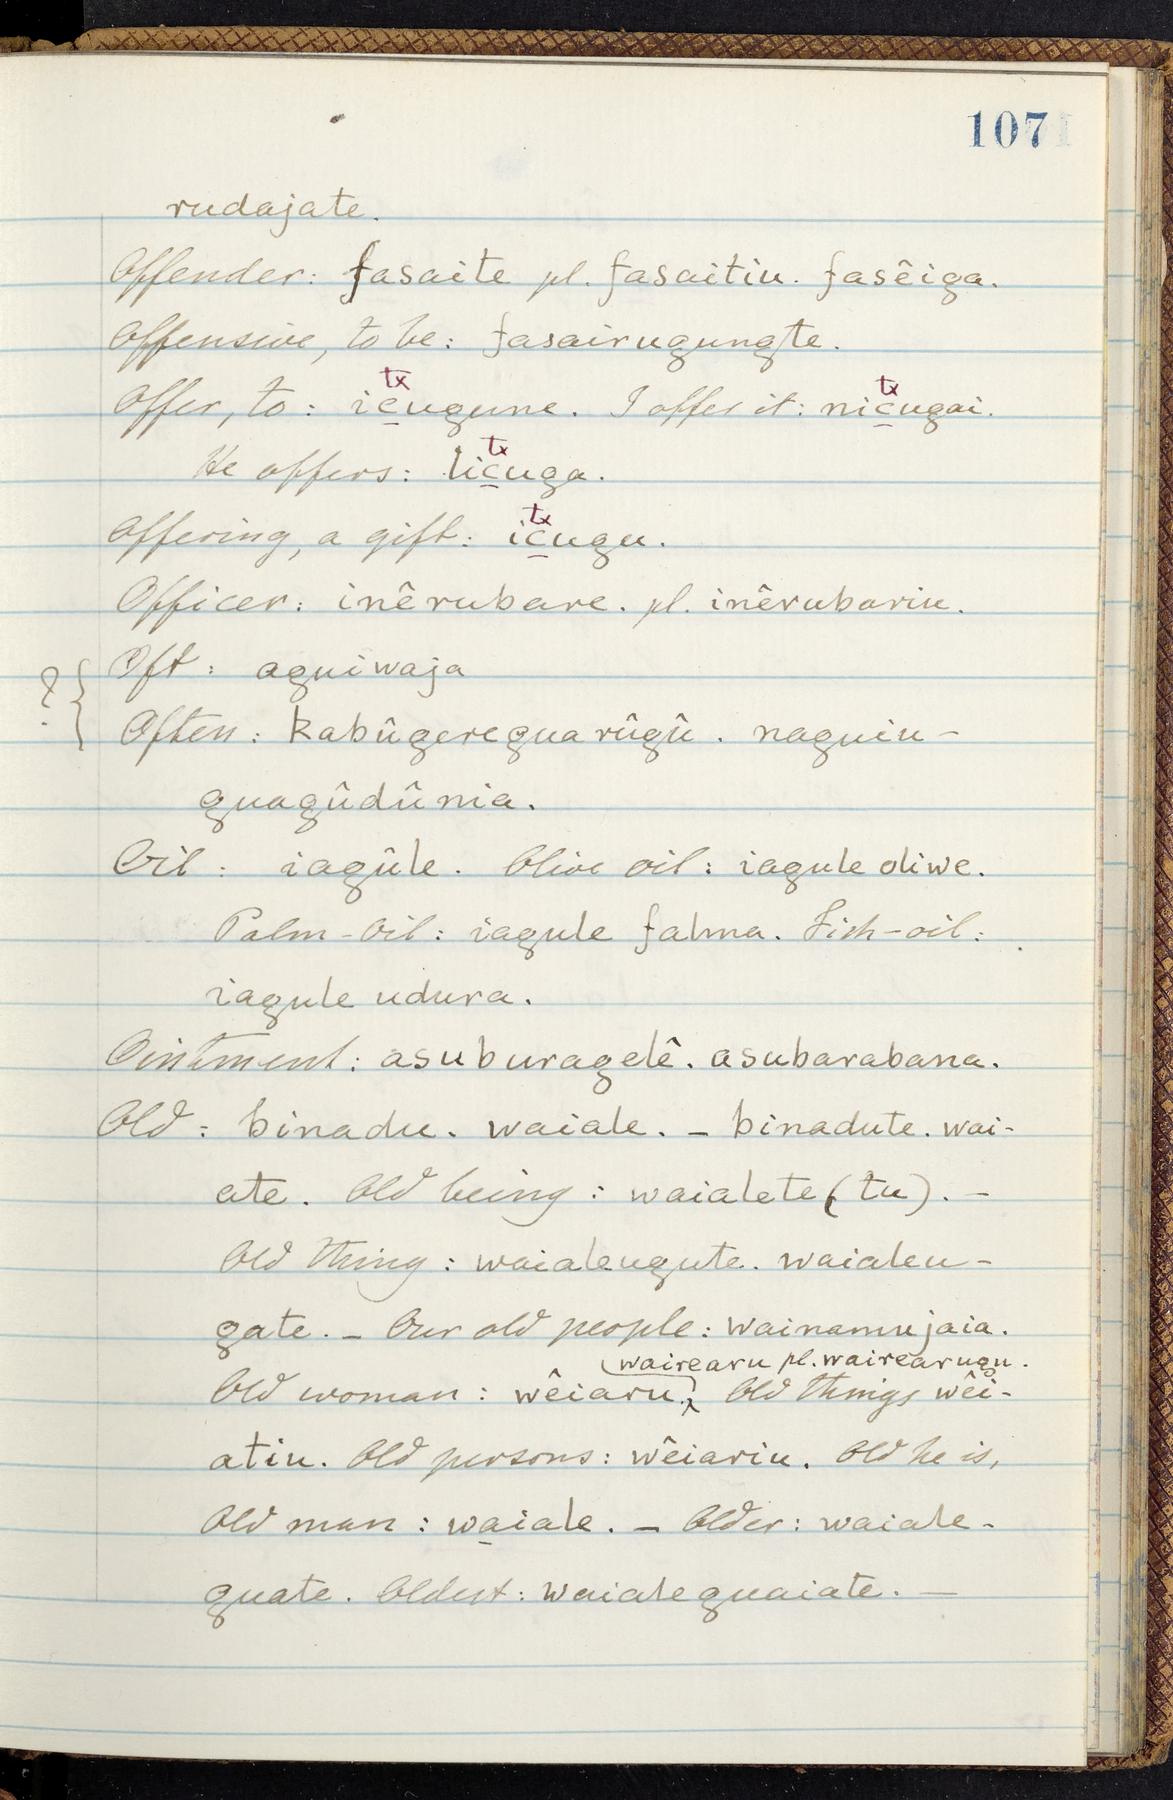 107
rudajate.
Offender: fasaite pl. fasaitiu. fasêiga.
Offensive, to be: fasairugungte.
tx tx
Offer, to: icugune. I offer it: nicugai.
tx
He offers: licuga.
tx
Offering, a gift: icugu.
Officer: inêrubare. pl. inêrubariu.
Oft: aguiwaja
?{
Often: kabûgereguarûgû. naguiu-
guagûdûnia.
Oil: iagûle. Olive oil: iagule oliwe.
Palm-Oil: iagule falma. Fish-oil:
iagule udura.
Ointment: asuburagelê. asubarabana.
Old: binadu. waiale. – binadute. wai-
ate. Old being: waialete (tu). –
Old thing: waialeugute. waialeu-
gate. – Our old people: wainamujaia.
wairearu pl. wairearugu.
Old woman: wêiaru. Old things wêi-
atiu. Old persons: wêiariu. Old he is,
Old man: waiale. – Older: waiale-
guate. Oldest: waialeguaiate. –